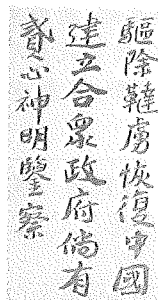 驅除韃虜恢復中國
建立合衆政府倘有
貳心神明鑒察